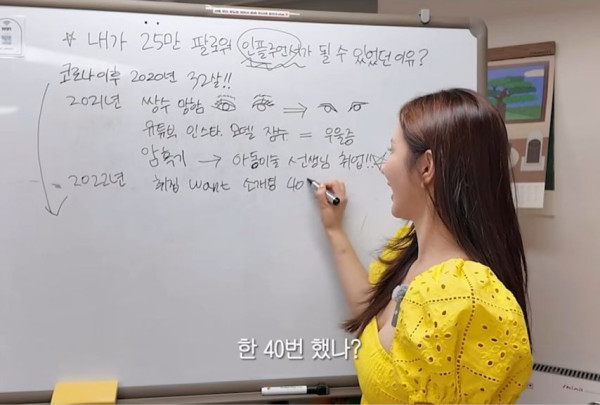 * 내가 25만 팔로워 인플루언서가 될 수 있었던 이유?
코로나 이후 2020년 32살!!
2021년 쌍수 망함 ⇒
유튜브, 인스타, 모델 잠수 = 우울증
암흑기 → 아동미술 선생님 취업!!
2022년 취집 want 소개팅 40
한 40번 했나?